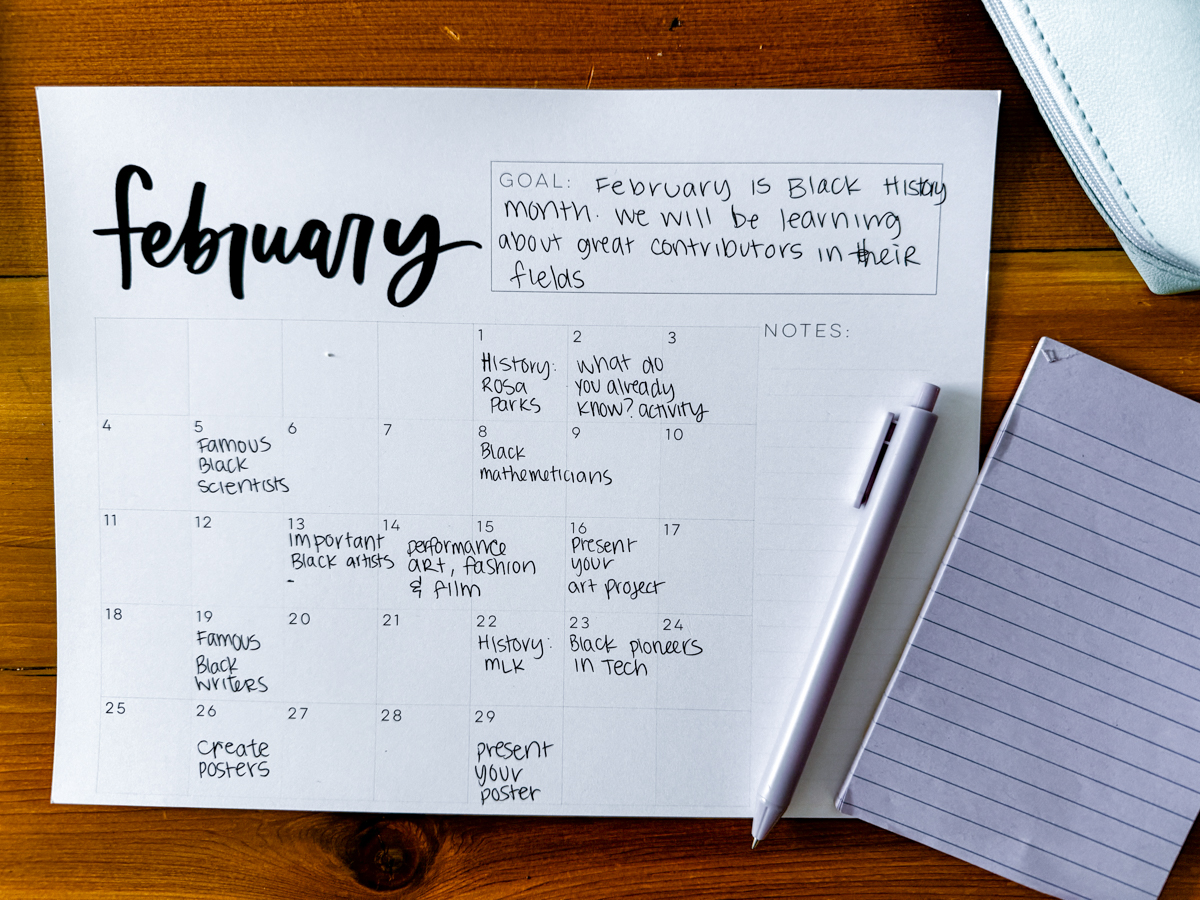 february
GOAL: February is Black History
month. we will be learning
about great contributors in their
fields
NOTES:
1 2 3
History:
Rosa
Parks
what do
you already
know? activity
4 5 6 7 8 9 10
Famous
Black
scientists
Black
mathemeticians
11 12 13 14 15 16 17
Important
Black artists
-
performance
art, fashion
& film
Present
your
art project
18 19 20 21 22 23 24
Famous
Black
writers
History:
MLK
Black pioneers
in Tech
25 26 27 28 29
create
posters
present
your
poster